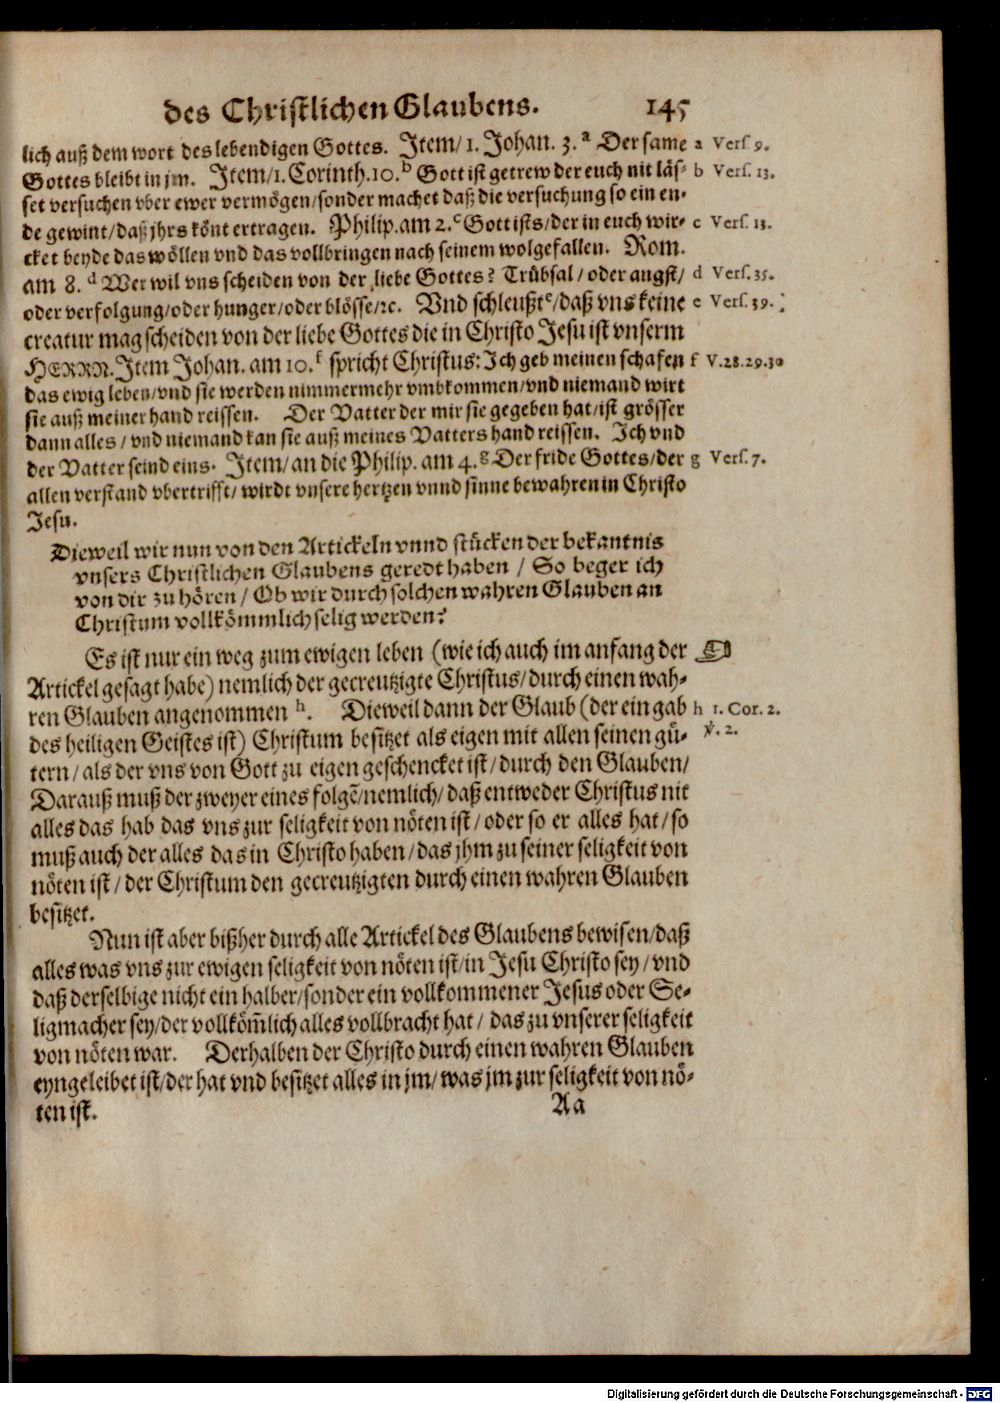 des Christlichen Glaubens. 145
lich auß dem wort des lebendigen Gottes. Item/ 1. Johan. 3. a Der same a Vers. 9.
Gottes bleibt in jm. Item/1. Corinth. 10. b Gott ist getrew der euch nit läs- b Vers. 13.
set versuchen vber ewer vermögen/sonder machet daß die versuchung so ein en-
de gewint/daß jhrs könt ertragen. Philip. am 2. c Gott ists/der in euch wir- c Vers. 13.
cket beyde das wöllen vnd das vollbringen nach seinem wolgefallen. Rom.
am 8. d Wer wil vns scheiden von der liebe Gottes? Trübsal/oder angst/ d Vers. 35.
oder verfolgung/oder hunger/oder blösse/ꝛc. Vnd schleußt e/daß vns keine e Vers. 39.
creatur mag scheiden von der liebe Gottes die in Christo Jesu ist vnserm
HERRN. Item Johan. am 10. f spricht Christus: Ich geb meinen schafen f V. 28. 29. 30
das ewig leben/vnd sie werden nimmermehr vmbkommen/vnd niemand wirt
sie auß meiner hand reissen. Der Vatter der mir sie gegeben hat/ist grösser
dann alles/vnd niemand kan sie auß meines Vatters hand reissen. Ich vnd
der Vatter seind eins. Item/an die Philip. am 4. g Der fride Gottes/der g Vers. 7.
allen verstand vbertrifft/wirdt vnsere hertzen vnnd sinne bewahren in Christo
Jesu.
Dieweil wir nun von den Artickeln vnnd stücken der bekantnis
vnsers Christlichen Glaubens geredt haben / So beger ich
von dir zu hören / Ob wir durch solchen wahren Glauben an
Christum vollkömmlich selig werden?
Es ist nur ein weg zum ewigen leben (wie ich auch im anfang der
Artickel gesagt habe) nemlich der gecreutzigte Christus/durch einen wah-
ren Glauben angenommen h. Dieweil dann der Glaub (der ein gab h 1. Cor. 2.
des heiligen Geistes ist) Christum besitzet als eigen mit allen seinen gü- ℣. 2.
tern/als der vns von Gott zu eigen geschencket ist/durch den Glauben/
Darauß muß der zweyer eines folgẽ/nemlich/daß entweder Christus nit
alles das hab das vns zur seligkeit von nöten ist/oder so er alles hat/so
muß auch der alles das in Christo haben/das jhm zu seiner seligkeit von
nöten ist/der Christum den gecreutzigten durch einen wahren Glauben
besitzet.
Nun ist aber bißher durch alle Artickel des Glaubens bewisen/daß
alles was vns zur ewigen seligkeit von nöten ist/in Jesu Christo sey/vnd
daß derselbige nicht ein halber/sonder ein vollkommener Jesus oder Se-
ligmacher sey/der vollköm̃lich alles vollbracht hat/ das zu vnserer seligkeit
von nöten war. Derhalben der Christo durch einen wahren Glauben
eyngeleibet ist/der hat vnd besitzet alles in jm/was jm zur seligkeit von nö-
ten ist. Aa
Digitalisierung gefördert durch die Deutsche Forschungsgemeinschaft - DFG